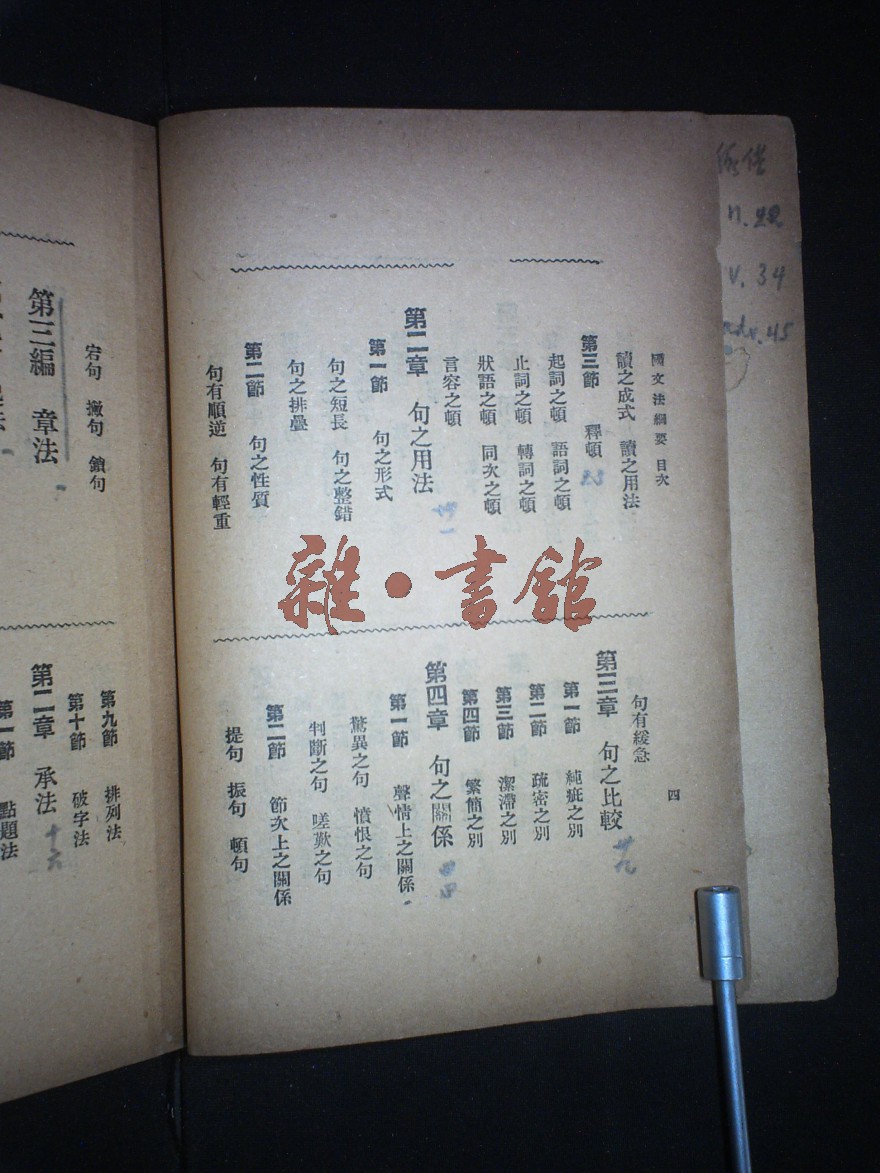 國文法綱要 目次
讀之成式 讀之用法
第三節 釋頓
起詞之頓 語詞之頓
止詞之頓 轉詞之頓
狀語之頓 同次之頓
言容之頓
第二章 句之用法
第一節 句之形式
句之短長 句之整錯
句之排疊
第二節 句之性質
句有順逆 句有輕重
四
句有緩急
第三章 句之比較
廿九
第一節 純疵之別
第二節 疏密之別
第三節 潔滯之別
第四節 繁簡之別
第四章 句之關係
第一節 聲情上之關係
驚異之句 憤恨之句
判斷之句 嗟歎之句
第二節 節次上之關係
提句 振句 頓句
宕句 撇句 鎖句
第三編 章法
第九節 排列法
第十節 破字法
第二章 承法
十六
第一節 點題法
雜·書舘
V. 34
adv. 45